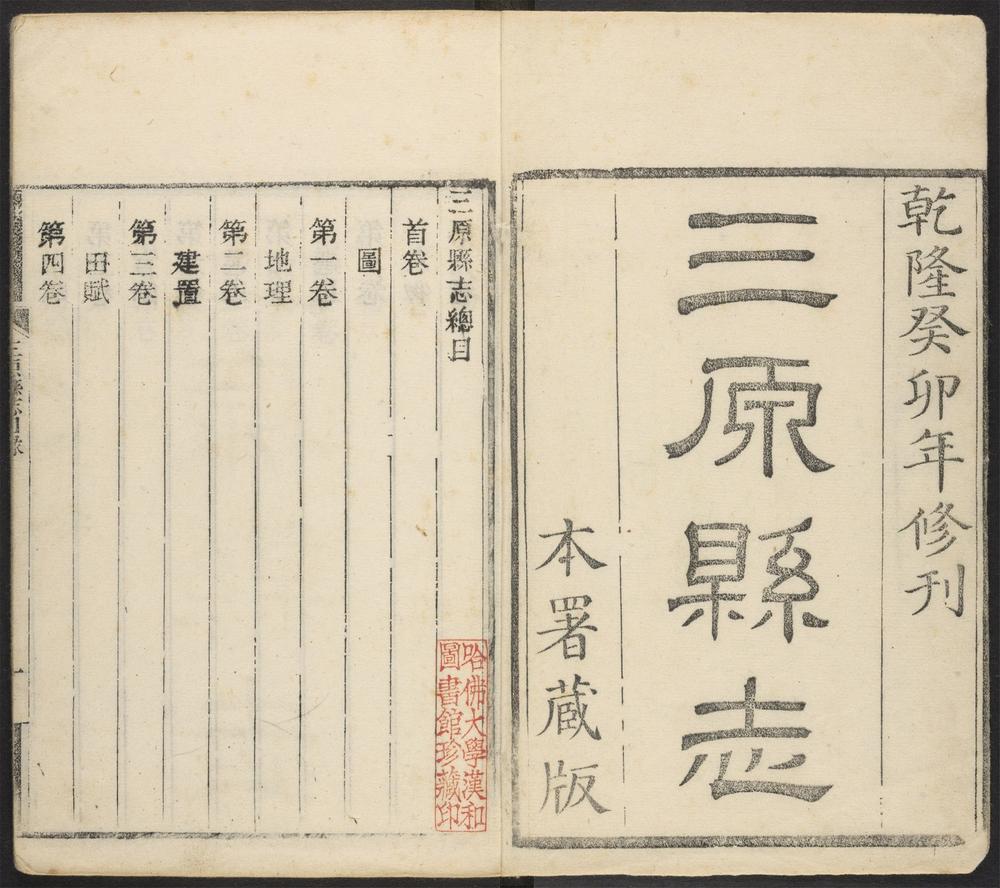 乾隆癸卯年修刊
三原縣志
本署藏版
三原縣志總目
首卷
圖
第一卷
地理
第二卷
建置
第三卷
田賦
第四卷
三原縣志目錄
一
哈佛大學漢和
圖書館珍藏印